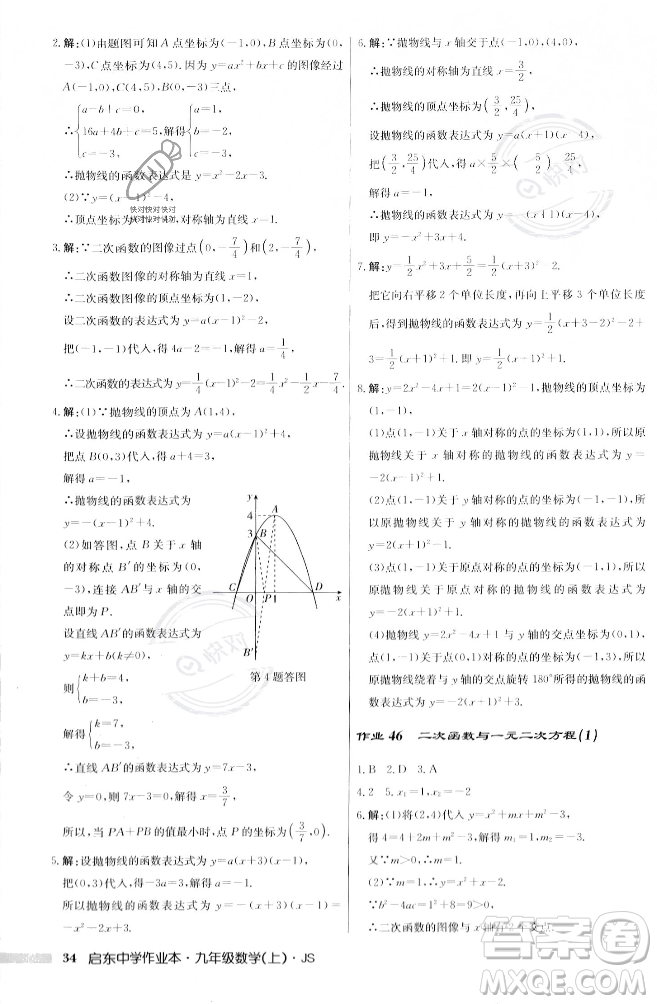 2.解:(1)由题图可知A点坐标为(-1,0),B点坐标为(0,
-3),C点坐标为(4,5).因为y=ax²+bx+c的图像经过
A(-1,0),C(4,5),B(0,-3)三点,
∴{a-b+c=0, 16a+4b+c=5, c=-3, 解得{a=1, b=-2, c=-3.
∴抛物线的函数表达式是y=
(2)∵y=(x-1)²-4,
∴顶点坐标为 对称轴为直线x=1.
3.解:∵二次函数的图像过点(0,-7/4)和(2,-7/4),
∴二次函数图像的对称轴为直线x=1,
∴二次函数图像的顶点坐标为(1,-2).
设二次函数的表达式为y=a(x-1)²-2,
把(-1,-1)代入,得4a-2=-1,解得a=1/4,
∴二次函数的表达式为y=1/4(x-1)²-2=1/4x²-1/2x-7/4.
4.解:(1)∵抛物线的顶点为A(1,4),
∴设抛物线的函数表达式为y=a(x-1)²+4,
把点B(0,3)代入,得a+4=3,
解得a=-1,
∴抛物线的函数表达式为
y=-(x-1)²+4.
(2)如答图,点B关于x轴
的对称点B′的坐标为(0,
-3),连接AB′与x轴的交
点即为P.
设直线AB′的函数表达式为
y=kx+b(k≠0),
则{k+b=4, b=-3,
解得{k=7, b=-3,
∴直线AB′的函数表达式为y=7x-3.
令y=0,则x=3/7,
所以,当PA+PB的值最小时,点P的坐标为(3/7,0).
y
4
3
A
B
C
O
P
1
D
x
B′
第4题答图
5.解:设抛物线的函数表达式为y=a(x+1)(x-3),
把(0,3)代入,得-3a=3,解得a=-1.
所以抛物线的函数表达式为y=-(x+1)(x-3)=
-x²+2x+3.
6.解:∵抛物线与x轴交于点(-1,0),(4,0),
∴抛物线的对称轴为直线x=3/2,
∴抛物线的顶点坐标为(3/2,25/4),
设抛物线的函数表达式为y=a(x+1)(x-4),
把(3/2,25/4)代入,得a×5/2×(-5/2)=25/4,
解得a=-1,
所以抛物线的函数表达式为y=-(x+1)(x-4),
即y=-x²+3x+4.
7.解:y=1/2x²+x+5/2=1/2(x+1)²+2,
把它向右平移2个单位长度,再向上平移3个单位长度
后,得到抛物线的函数表达式为y=1/2(x+1-2)²+2+
3=1/2(x-1)²+5.
8.解:y=2x²-4x+1=2(x-1)²-1,抛物线的顶点坐标为
(1,-1),
(1)点(1,-1)关于x轴对称的点的坐标为(1,1),所以
原抛物线关于x轴对称的抛物线的函数表达式为
y=-2(x-1)²+1.
(2)点(1,-1)关于y轴对称的点的坐标为(-1,-1),所
以原抛物线关于y轴对称的抛物线的函数表达式为
y=2(x+1)²-1.
(3)点(1,-1)关于原点对称的点的坐标为(-1,1),所以
原抛物线关于原点对称的抛物线的函数表达式为
y=-2(x+1)²+1.
(4)原抛物线y=2x²-4x+1与y轴的交点坐标为(0,1),
点(1,-1)关于点(0,1)对称的点的坐标为(-1,3),所以
原抛物线绕着与y轴的交点旋转180°所得抛物线的函
数表达式为y=-2(x+1)²+3.
作业46 二次函数与一元二次方程(1)
1.B 2.D 3.A
4.2 5.x₁=1,x₂=2
6.解:(1)将(2,4)代入y=x²+mx+m²-2,
得4=4+2m+m²-2,解得m₁=1,m₂=-2,
又∵m>0,∴m=1.
(2)∵m=1,∴y=x²+x-1,
∵b²-4ac=1²+
∴二次函数的图像与x轴有2个
34 启东中学作业本·九年级数学(上)·JS
快对快对快对
快对
答案圈
MXQE.COM